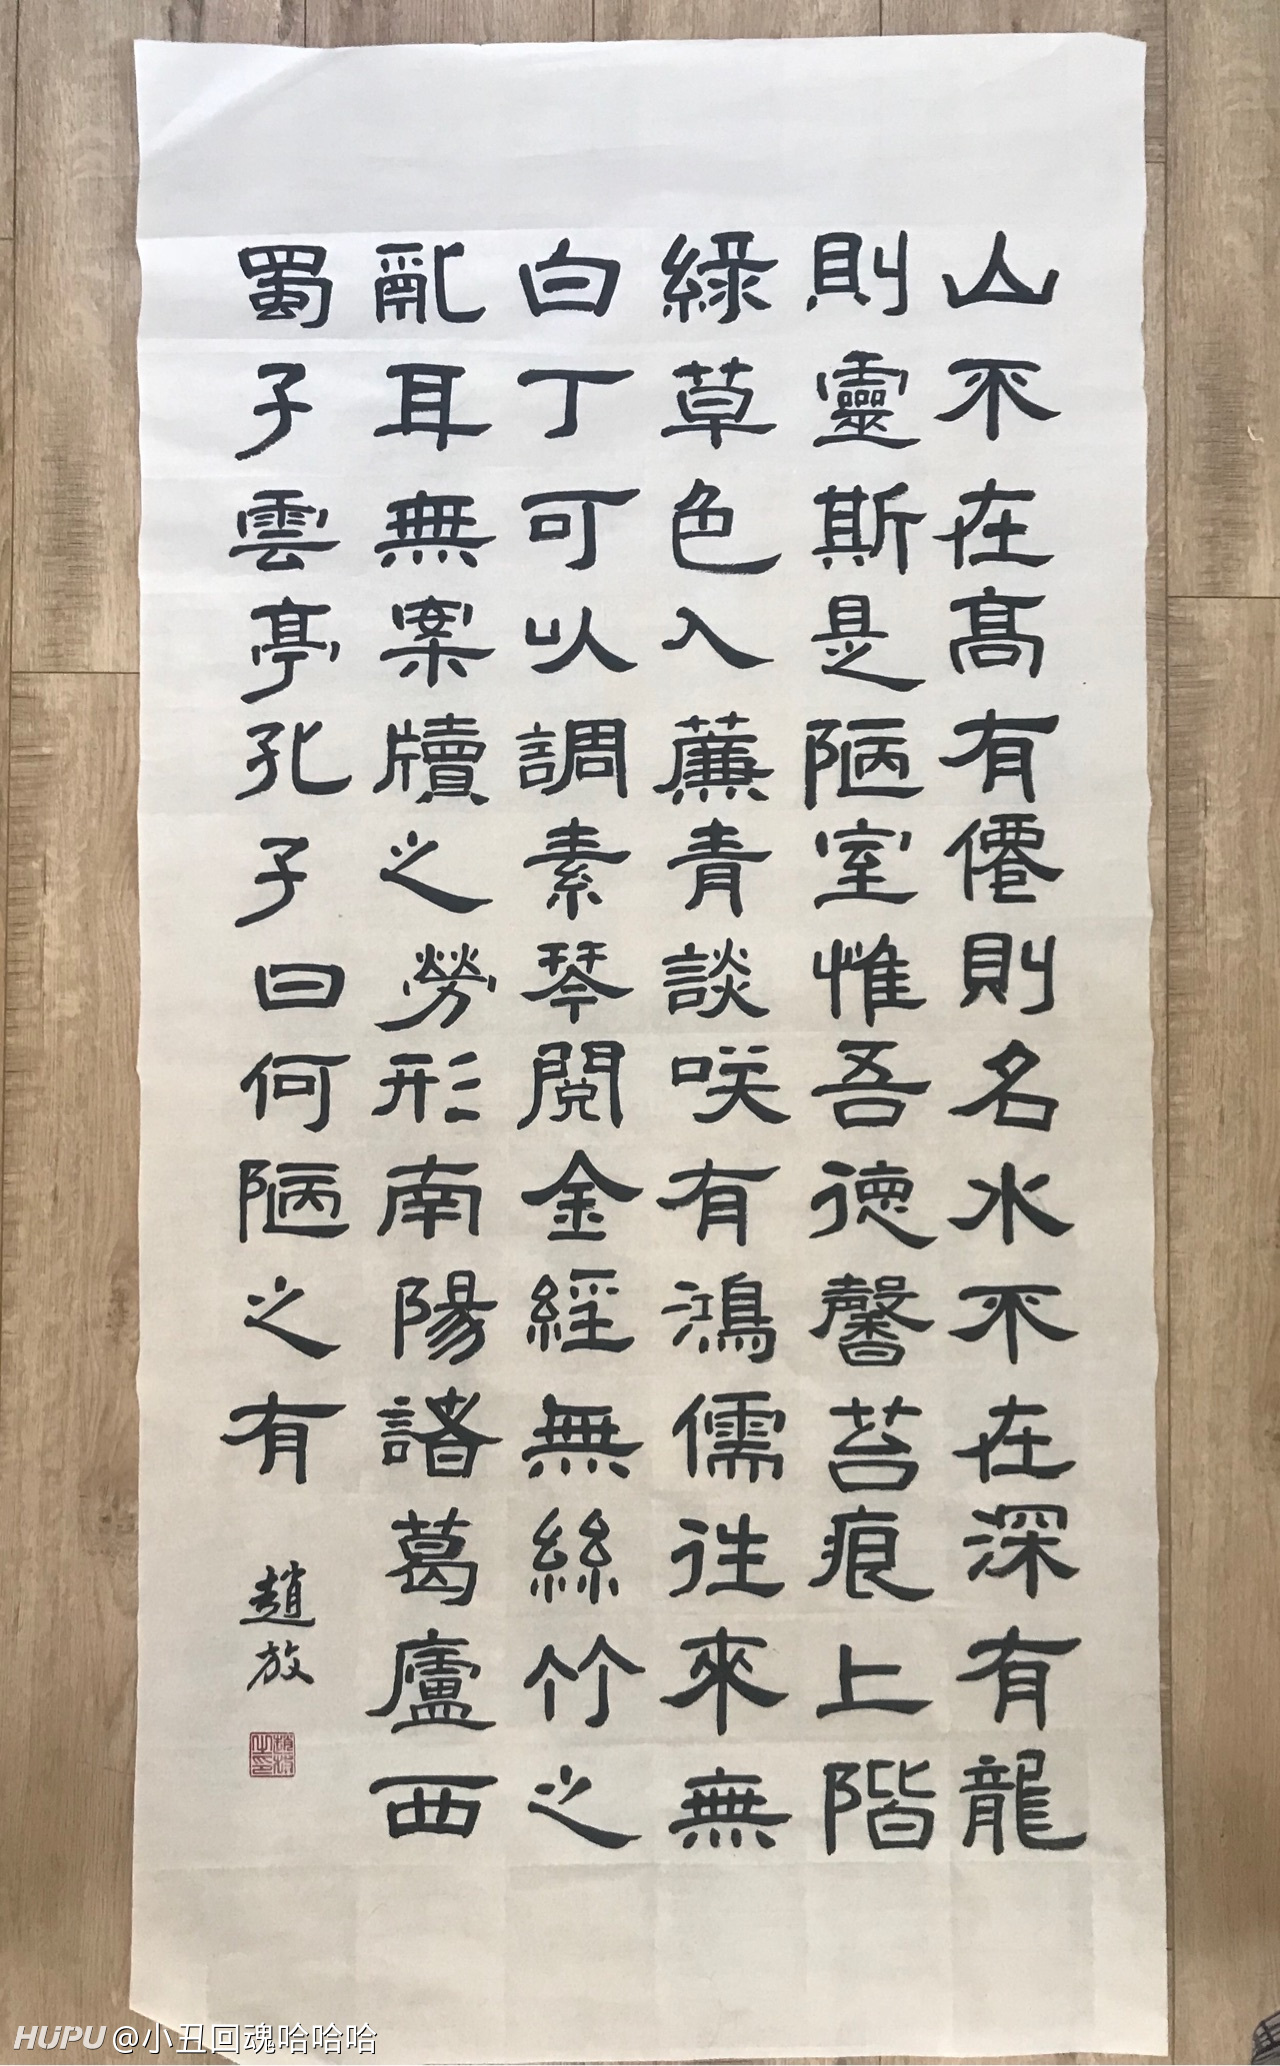 山不在高有僊則名水不在深有龍
則靈斯是陋室惟吾德馨苔痕上階
綠草色入薕青談咲有鴻儒往來無
白丁可以調素琴閱金經無絲竹之
亂耳無案牘之勞形南陽諸葛廬西
蜀子雲亭孔子曰何陋之有
趙放
HUPU @小丑回魂哈哈哈